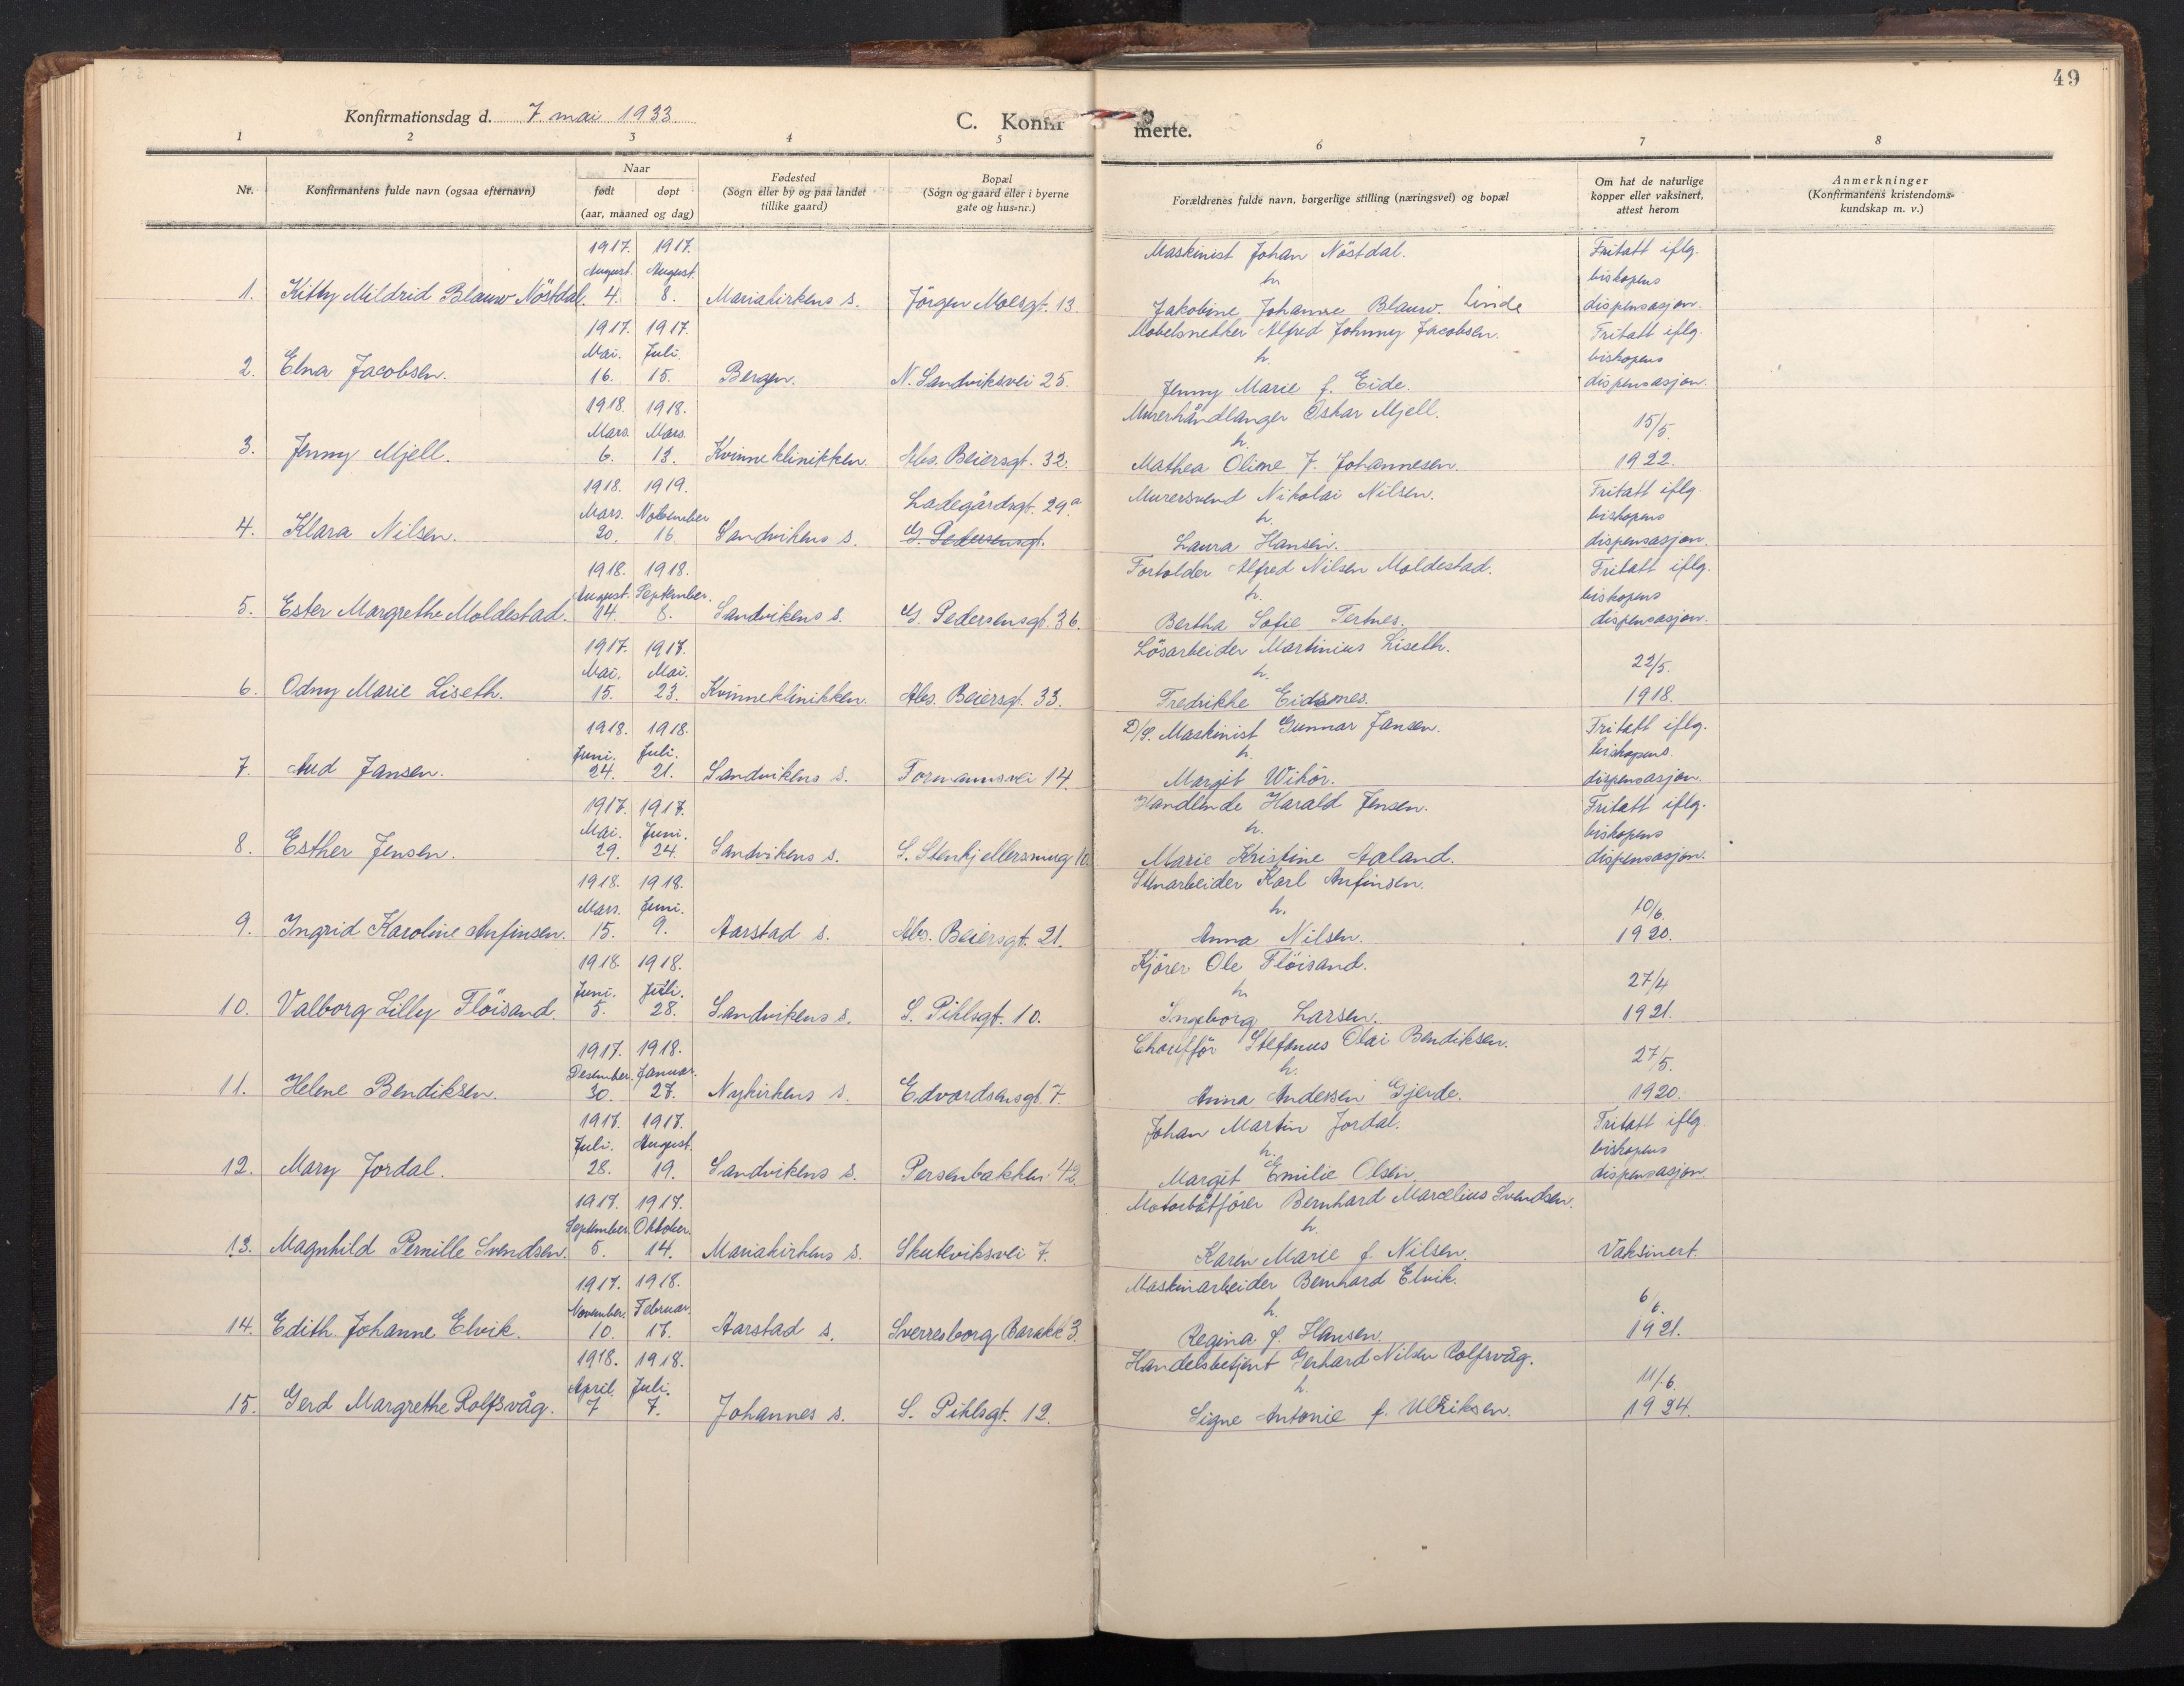 49
Konfirmationsdag d. 7. mai 1933.
C. Konfir merte.
1 2 3 4 5 6 7 8
Nr. Konfirmantens fulde navn (ogsaa efternavn) Naar født døpt (aar, maaned og dag) Fødested (Sogn eller by og paa landet tillike gaard) Bopæl (Sogn og gaard eller i byerne gate og hus-nr.) Forældrenes fulde navn, borgerlige stilling (næringsvei) og bopæl Om hat de naturlige kopper eller vaksinert, attest herom Anmerkninger (Konfirmantens kristendoms-kundskap m. v.)
1917. 1917. Maskinist Johan Nöstdal. Fritatt iflg.
August. August. h. biskopens
1. Kitty Mildrid Blauw Nöstdal. 4. 8. Mariakirkens s. Jörgen Moesgt. 13. Jakobine Johanne Blauw. Linde dispensasjon.
1917. 1917. Möbelsnekker Alfred Johnny Jacobsen. Fritatt iflg.
Mai. Juli. h. biskopens
2. Elna Jacobsen. 16. 15. Bergen. N. Sandviksvei 25. Jenny Marie f. Eide. dispensasjon.
1918. 1918. Murerhåndlanger Oskar Mjell. 15/5.
Mars. Mars. h.
3. Jenny Mjell. 6. 13. Kvinneklinikken. Abs. Beiersgt. 32. Mathea Oline J. Johannesen. 1922.
1918. 1919. Ladegårdsgt. 29a. Murersvend Nikolai Nilsen. Fritatt iflg.
Mars. November h. biskopens
4. Klara Nilsen. 20. 16. Sandvikens s. G. Pedersensgt. Laura Hansen. dispensasjon.
1918. 1918. Fortolder Alfred Nilsen Moldestad. Fritatt iflg.
August. September. h. biskopens
5. Ester Margrethe Moldestad. 14. 8. Sandvikens s. G. Pedersensgt. 36. Bertha Sofie Tertnes. dispensasjon.
1917. 1917. Lösarbeider Martinius Liseth. 22/5.
Mai. Mai. h.
6. Odny Marie Liseth. 15. 23. Kvinneklinikken. Abs. Beiersgt. 33. Fredrikke Eidsnes. 1918.
1918. 1918. D/S. Maskinist Gunnar Jansen. Fritatt iflg.
Juni. Juli. h. biskopens
7. Aud Jansen. 24. 21. Sandvikens s. Formannsvei 14. Margit Wikör. dispensasjon.
1917. 1917. Handlende Harald Jensen. Fritatt iflg.
Mai. Juni. h. biskopens
8. Esther Jensen. 29. 24. Sandvikens s. S. Stenkjellersmug 10. Marie Kristine Aaland. dispensasjon.
1918. 1918. Stenarbeider Karl Anfinsen. 10/6.
Mars. Juni. h.
9. Ingrid Karoline Anfinsen. 15. 9. Aarstad s. Abs. Beiersgt. 21. Anna Nilsen. 1920.
1918 1918. Kjörer Ole Flöisand. 27/4
Juni. Juli. h.
10. Valborg Lilly Flöisand. 5. 28. Sandvikens s. S. Pihlsgt. 10. Ingeborg Larsen. 1921.
1917. 1918. Chaufför Stefanus Olai Bendiksen. 27/5.
Desember. Januar. h.
11. Helene Bendiksen. 30. 27. Nykirkens s. Edvardsensgt. 7. Anna Andersen Gjerde. 1920.
1917. 1917. Johan Martin Jordal. Fritatt iflg.
Juli. August. h. biskopens
12. Mary Jordal. 28. 19. Sandvikens s. Persenbakken 42. Margit Emilie Olsen. dispensasjon.
1917. 1917. Motorbåtförer Bernhard Marcelius Svendsen.
September. Oktober. h.
13. Magnhild Pernille Svendsen. 5. 14. Mariakirkens s. Skuteviksvei 7. Karen Marie f. Nilsen. Vaksinert.
1917. 1918. Maskinarbeider Bernhard Elvik. 6/6.
November. Februar. h.
14. Edith Johanne Elvik. 10. 17. Aarstad s. Sverresborg Barakk 3. Regina f. Hansen. 1921.
1918. 1918. Handelsbetjent Gerhard Nilsen Rolfsvåg. 11/6.
April. Juli. h.
15. Gerd Margrethe Rolfsvåg. 7 7. Johannes s. S. Pihlsgt. 12. Signe Antonie f. Ulriksen. 1924.